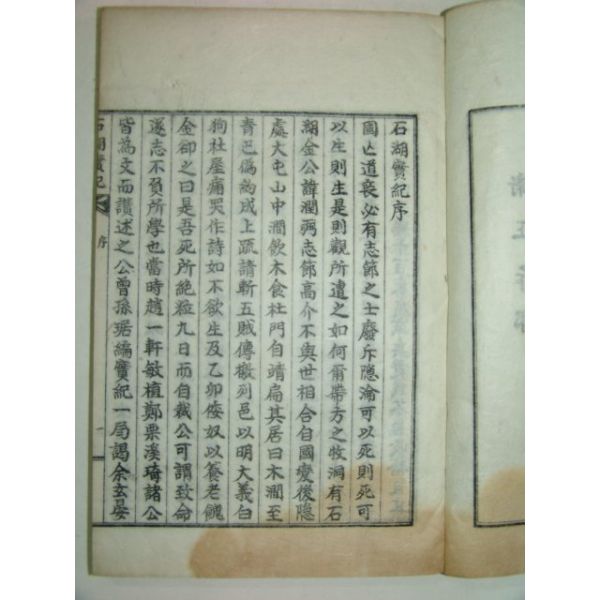 石湖實紀序
國亡道喪必有志節之士廢斥隱淪可以死則死可
以生則生是則觀所遭之如何爾帶方之牧洞有石
湖金公諱潤  志節高介不與世相合自國變後隱
處大屯山中澗飮木食杜門自靖扁其居曰木澗至
靑巴僞約成上疏請斬五賊傳檄列邑以明大義白
狗社屋痛哭作詩如不欲生及乙卯倭奴以養老餽
金卻之曰是吾死所絶粒九日而自裁公可謂致命
遂志不負所學也當時趙一軒敏植鄭栗溪琦諸公
皆爲文而讚述之公曾孫琚編實紀一局謁余玄晏
石湖實紀 序 一